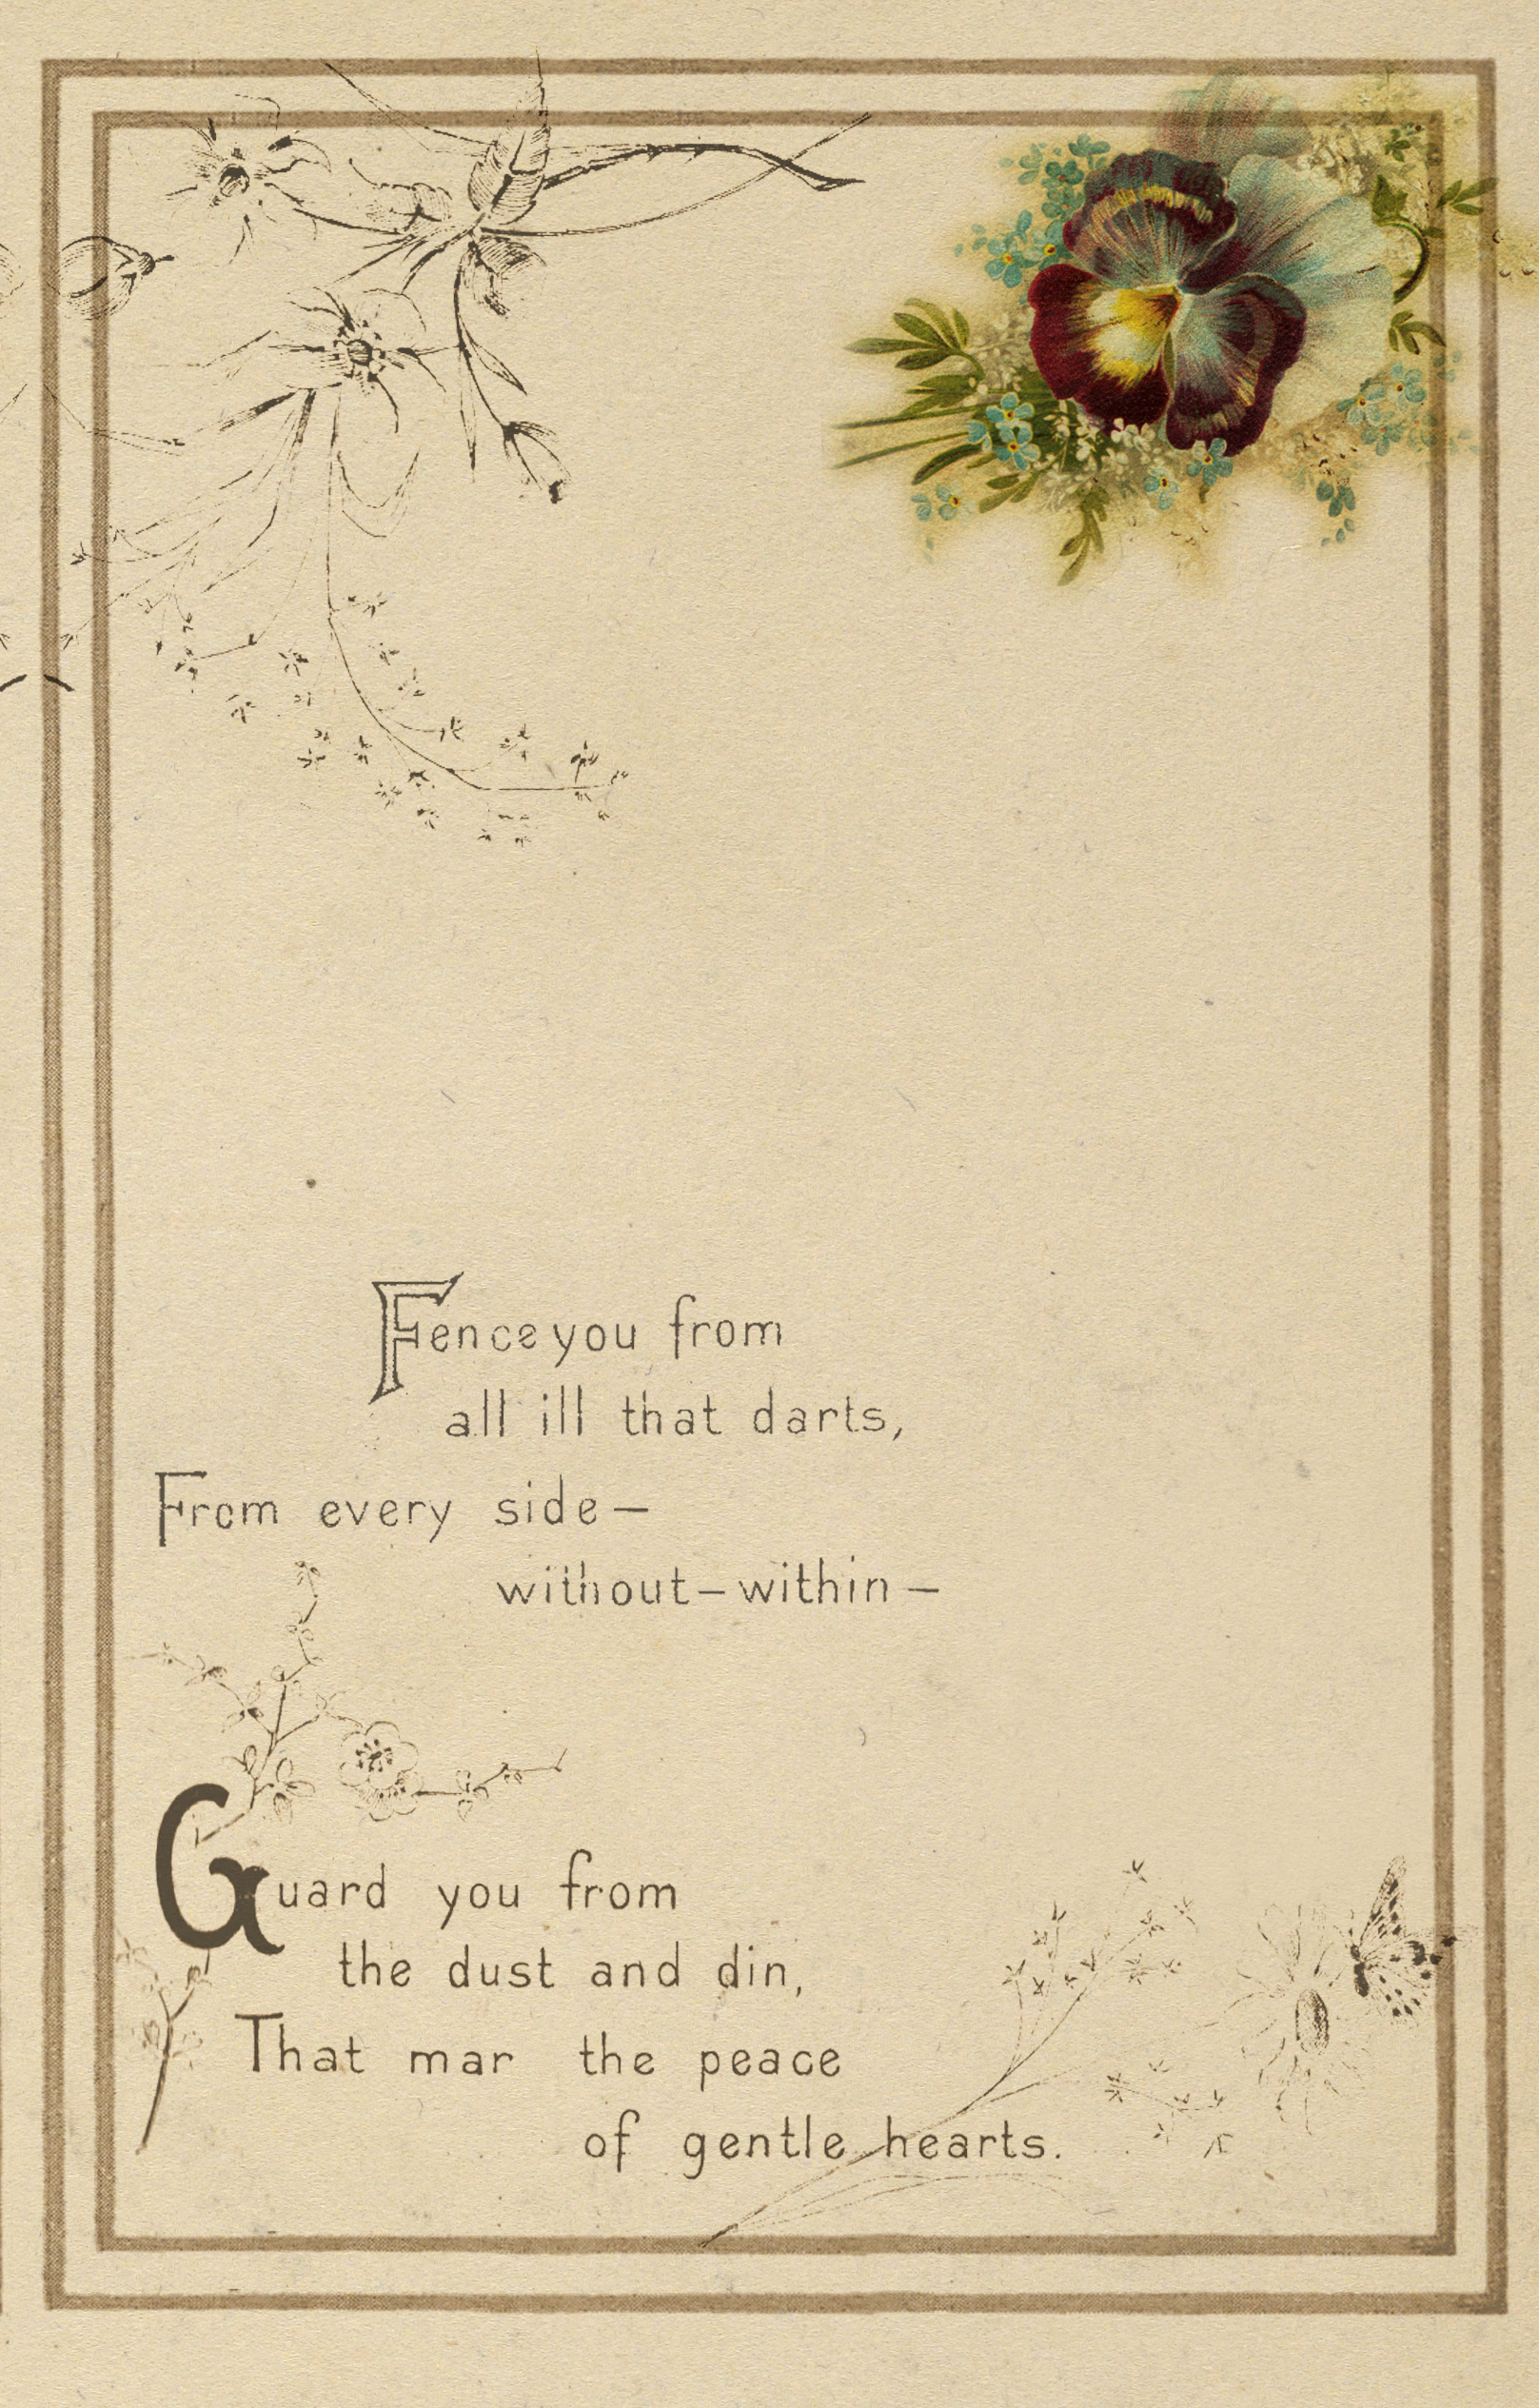 Fence you from
all ill that darts,
From every side—
without—within—
Guard you from
the dust and din,
That mar the peace
of gentle hearts.